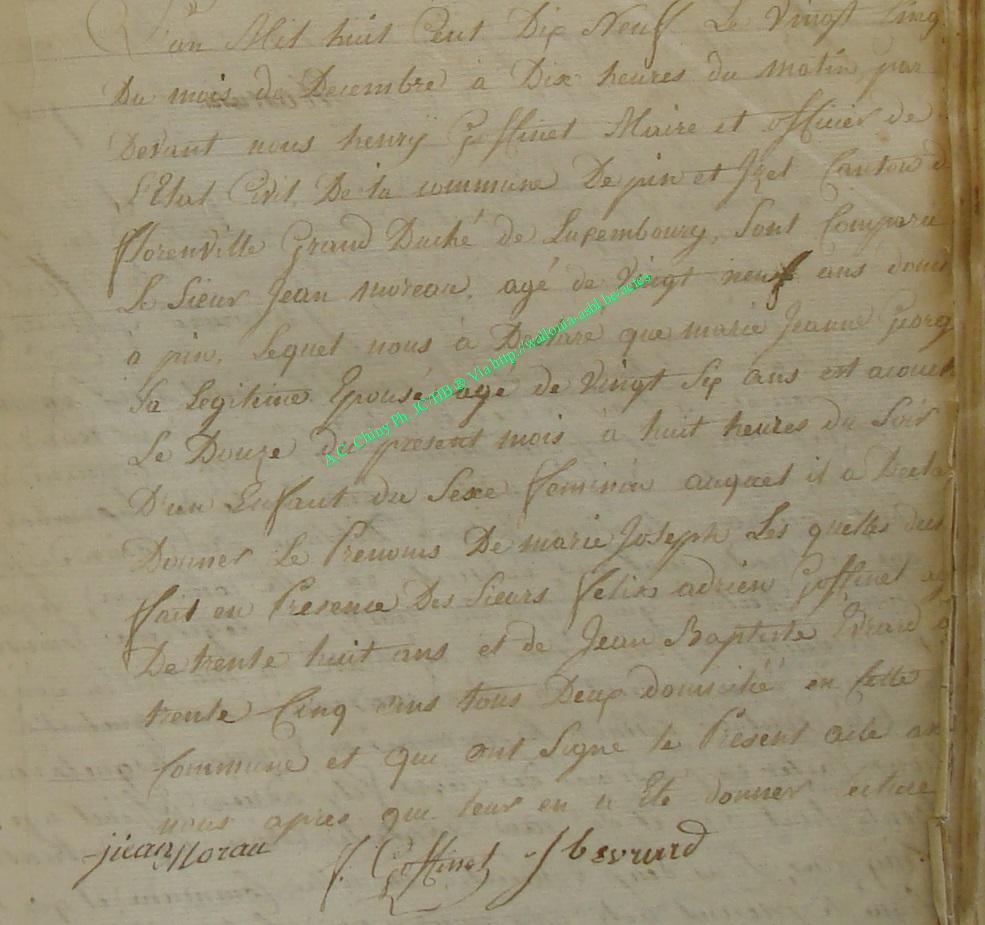 L'an Mil huit Cent Dix Neuf Le Vingt Cinq
Du mois de Decembre à Dix heures du matin par
Devant nous henry Goffinet Maire et officier de
L'Etat Civil De la commune De pin et Izel Canton d
florenville Grand Duché de Luxembourg, Sont Comparu
Le Sieur Jean moreau, agé de Vingt neuf ans domi
a pin, Lequel nous à Declaré que marie Jeanne Georg
Sa Legitime Epouse agé de Vingt Six ans est acouch
Le Douze du present mois à huit heures du Soir
D'un Enfant du Sexe feminin auquel il a Decla
Donner Le Prenoms De marie Joseph Les quelles
fait en Presence Des Sieurs felix adrien Goffinet ag
De trente huit ans et de Jean Baptiste Evrard a
trente Cinq ans tous Deux domicilié en Cette
Commune et qui ont Signe le Présent acte av
nous apres que leur en a Ete donner lecture
jean Morau f. Goffinet J b evrard
A.C. Chiny Ph. JC/HB ® Via http://wallonia-asbl.be/actes